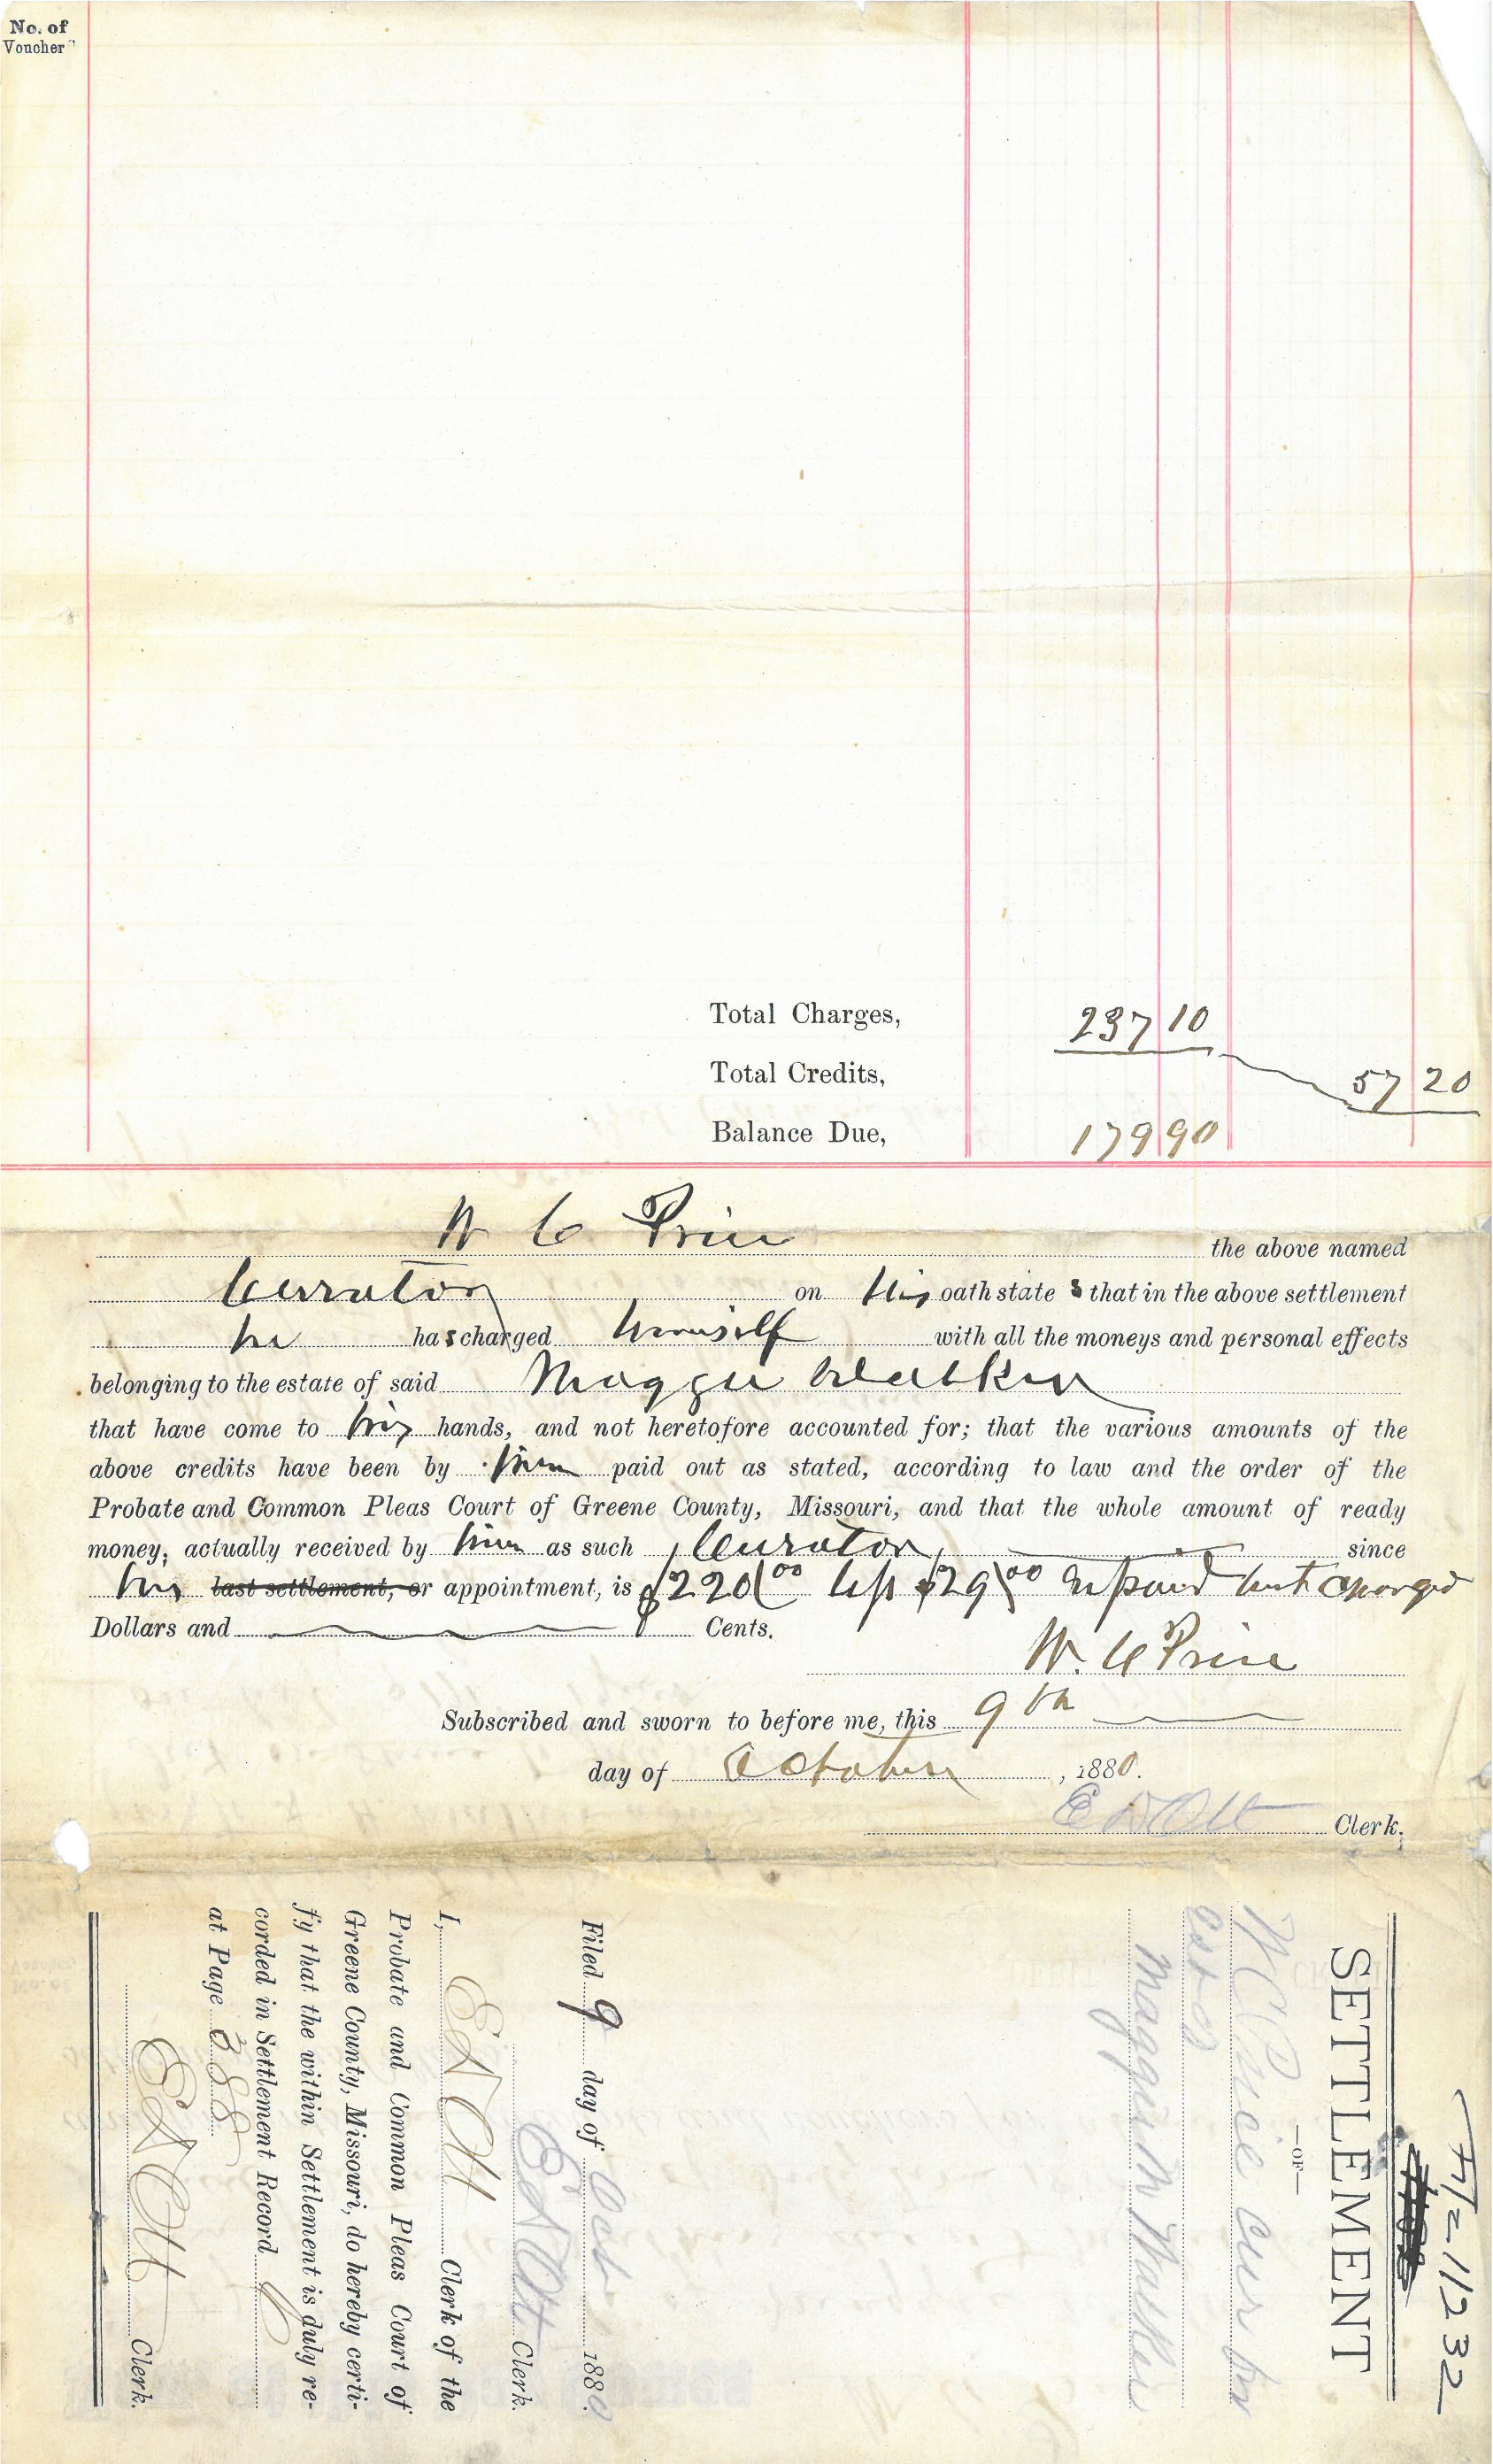 No. of
Voucher
Total Charges, 237 10
Total Credits, 57 20
Balance Due, 179 90
W C Price the above named
Curator on his oath states that in the above settlement
he has charged himself with all the moneys and personal effects
belonging to the estate of said Maggie Walker
that have come to his hands, and not heretofore accounted for; that the various amounts of the
above credits have been by him paid out as stated, according to law and the order of the
Probate and Common Pleas Court of Greene County, Missouri, and that the whole amount of ready
money, actually received by him as such Curator since
his last settlement, or appointment, is $220 00 less $29 00 unpaid but charged
Dollars and Cents.
W. C Price
Subscribed and sworn to before me, this 9th
day of October, 1880.
E D Ott Clerk.
F7-11232
SETTLEMENT
—OF—
W C Price Cur in
Est of
Maggie M Walker
Filed 9 day of Oct 1880
E D Ott Clerk.
I, E D Ott Clerk of the
Probate and Common Pleas Court of
Greene County, Missouri, do hereby certi-
fy that the within Settlement is duly re-
corded in Settlement Record
at Page 388
E D Ott Clerk.